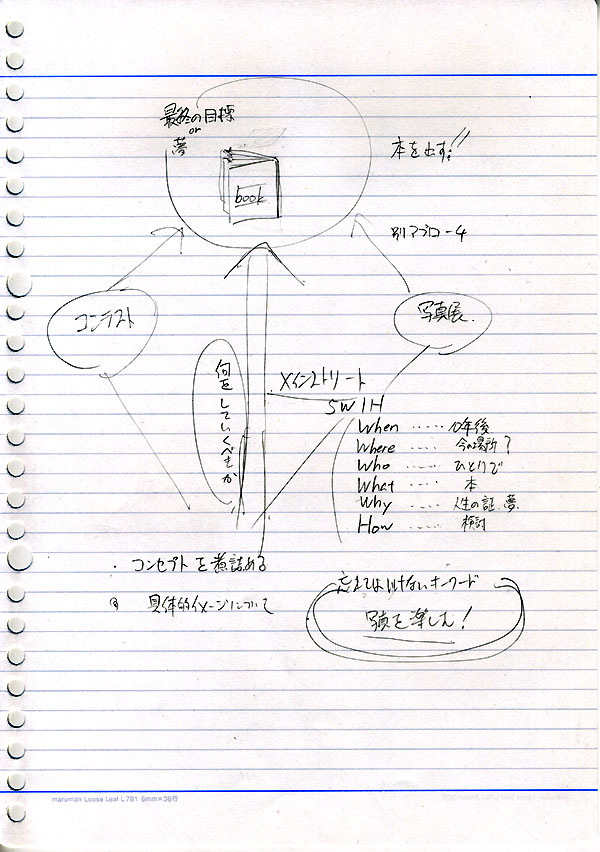 最終の目標
or
夢
本を出す!!
book
別アプローチ
コンテスト
写真展
何をしていくべきか
メインストリート
5W1H
When ..... 10年後
Where ..... 今の場所?
Who ..... ひとりで
What ..... 本
Why ..... 人生の証 夢
How ..... 検討
・コンセプトを煮詰める
具体的イメージについて
忘れてはいけないキーワード
写真を楽しむ!
maruman Loose Leaf L781 6mm×36行